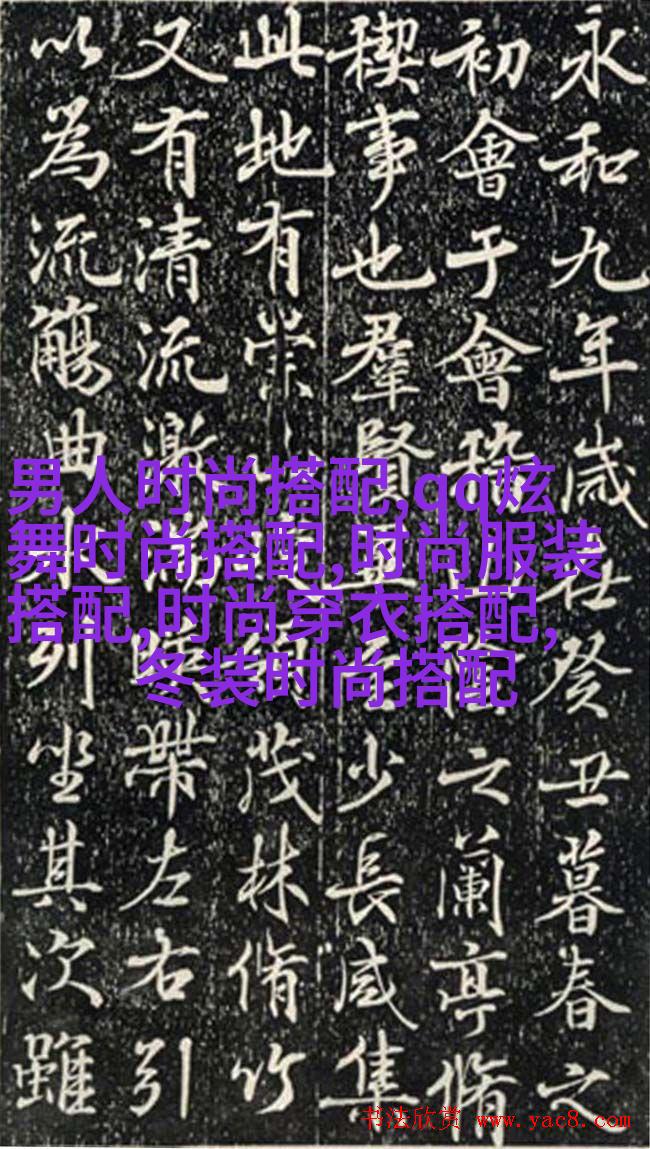 永和九年歲在癸丑暮春之
初會于會稽之蘭亭脩
稧事也羣賢少長咸集
此地有崇茂林脩竹
又有清流激帶左右引
以為流觴曲列坐其次雖
男人时尚搭配,qq炫
舞时尚搭配,时尚服装
搭配,时尚穿衣搭配,
冬装时尚搭配
书法欣赏 www.yac8.com